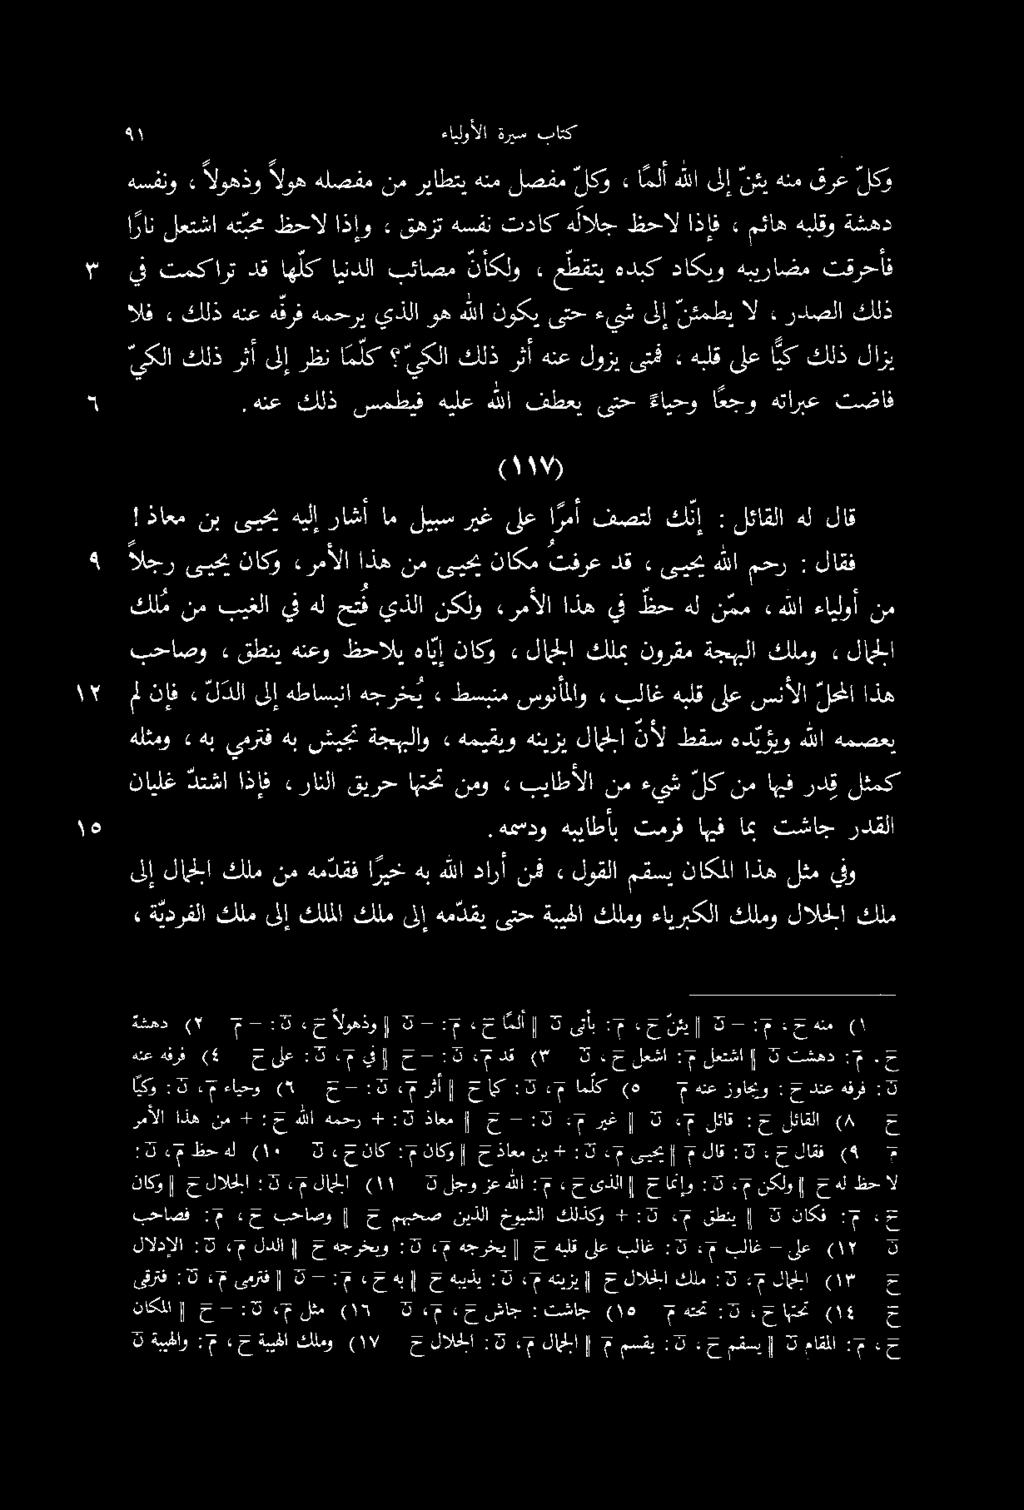 كتاب سيرة الأولياء ٩١
وكلّ عرق منه يئنّ إلى الله ألمًا ، وكلّ مفصل منه يتطاير من مفصله هولاً وذهولاً ، ونفسه
دهشة وقلبه هائم ، فإذا لاحظ جلاله كادت نفسه تزهق ، وإذا لاحظ محبّته اشتعل نارًا
فأحرقت مضاربه ويكاد كبده يتقطّع ، ولكأنّ مصائب الدنيا كلّها قد تراكمت في ٣
ذلك الصدر ، لا يطمئنّ إلى شيء حتى يكون الله هو الذي يرحمه فرفّه عنه ذلك ، فلا
يزال ذلك كيًّا على قلبه ، فمتى يزول عنه أثر ذلك الكيّ؟ كلّما نظر إلى أثر ذلك الكيّ
فاضت عبراته وجعًا وحياءً حتى يعطف الله عليه فيطمس ذلك عنه. ٦
(١١٧)
قال له القائل : إنّك لتصف أمرًا على غير سبيل ما أشار إليه يحيـى بن معاذ !
فقال : رحم الله يحيـى ، قد عرفتُ مكان يحيـى من هذا الأمر ، وكان يحيـى رجلاً ٩
من أولياء الله ، ممّن له حظّ في هذا الأمر ، ولكن الذي فُتح له في الغيب من مُلك
الجمال ، وملك البهجة مقرون بملك الجمال ، وكان إيّاه يلاحظ وعنه ينطق ، وصاحب
هذا المحلّ الأنس على قلبه غالب ، والمأنوس منبسط ، يُخرجه انبساطه إلى الدَلّ ، فإن لم ١٢
يعصمه الله ويؤيّده سقط لأنّ الجمال يزينه ويقيمه ، والبهجة تجيش به فترمي به ، ومثله
كمثل قِدر فيها من كلّ شيء من الأطايب ، ومن تحتها حريق النار ، فإذا اشتدّ غليان
القدر جاشت بما فيها فرمت بأطايبه ودسمه. ١٥
وفي مثل هذا المكان يسقم القول ، فمن أراد الله به خيرًا فقدّمه من ملك الجمال إلى
ملك الجلال وملك الكبرياء وملك الهيبة حتى يقدّمه إلى ملك الملك إلى ملك الفرديّة ،
١) منه خ ، م : – ن || يئنّ خ ، م : بأتى ن || ألمًا خ ، م : – ن || وذهولاً خ ، ن : – م ٢) دهشة
خ . م : دهشت ن || اشتعل م : اشعل خ ، ن ٣) قد م ، ن : – خ || في م ، ن : على خ ٤) فرفه عنه
ن : فرفه عند خ : ويجاوز عنه م ٥) كلما م ، ن : كا خ || أثر م ، ن : – خ ٦) وحياء م ، ن : وكيا
خ ٨) القائل خ : قائل م ، ن || غير م ، ن : – خ || معاذ ن : + رحمه الله خ : + من هذا الأمر
م ٩) فقال خ ، ن : قال م || يحيـى م ، ن : + بن معاذ خ || وكان م : كان خ ، ن ١٠) له حظ م ، ن :
لا حظ له خ || ولكن م ، ن : وإنما خ || الذى خ ، م : الله عز وجل ن ١١) الجمال م ، ن : الجلال خ || وكان
خ ، م : فكان ن || ينطق م ، ن : + وكذلك الشيوخ الذين صحبهم خ || وصاحب خ ، م : فصاحب
ن ١٢) على – غالب م ، ن : غالب على قلبه خ || يخرجه م ، ن : ويخرجه خ || الدل م ، ن : الإدلال
خ ١٣) الجمال م ، ن : ملك الجلال خ || يزينه م ، ن : يذيبه خ || به خ ، م : – ن || فترمى م ، ن : فترقى
خ ١٤) تحتها خ ، ن : تحته م ١٥) جاشت : جاش خ ، م ، ن ١٦) مثل م ، ن : – خ || المكان
خ ، م : المقام ن || يسقم خ ، ن : يقسم م || الجمال م ، ن : الجلال خ ١٧) وملك الهيبة خ ، م : والهيبة ن